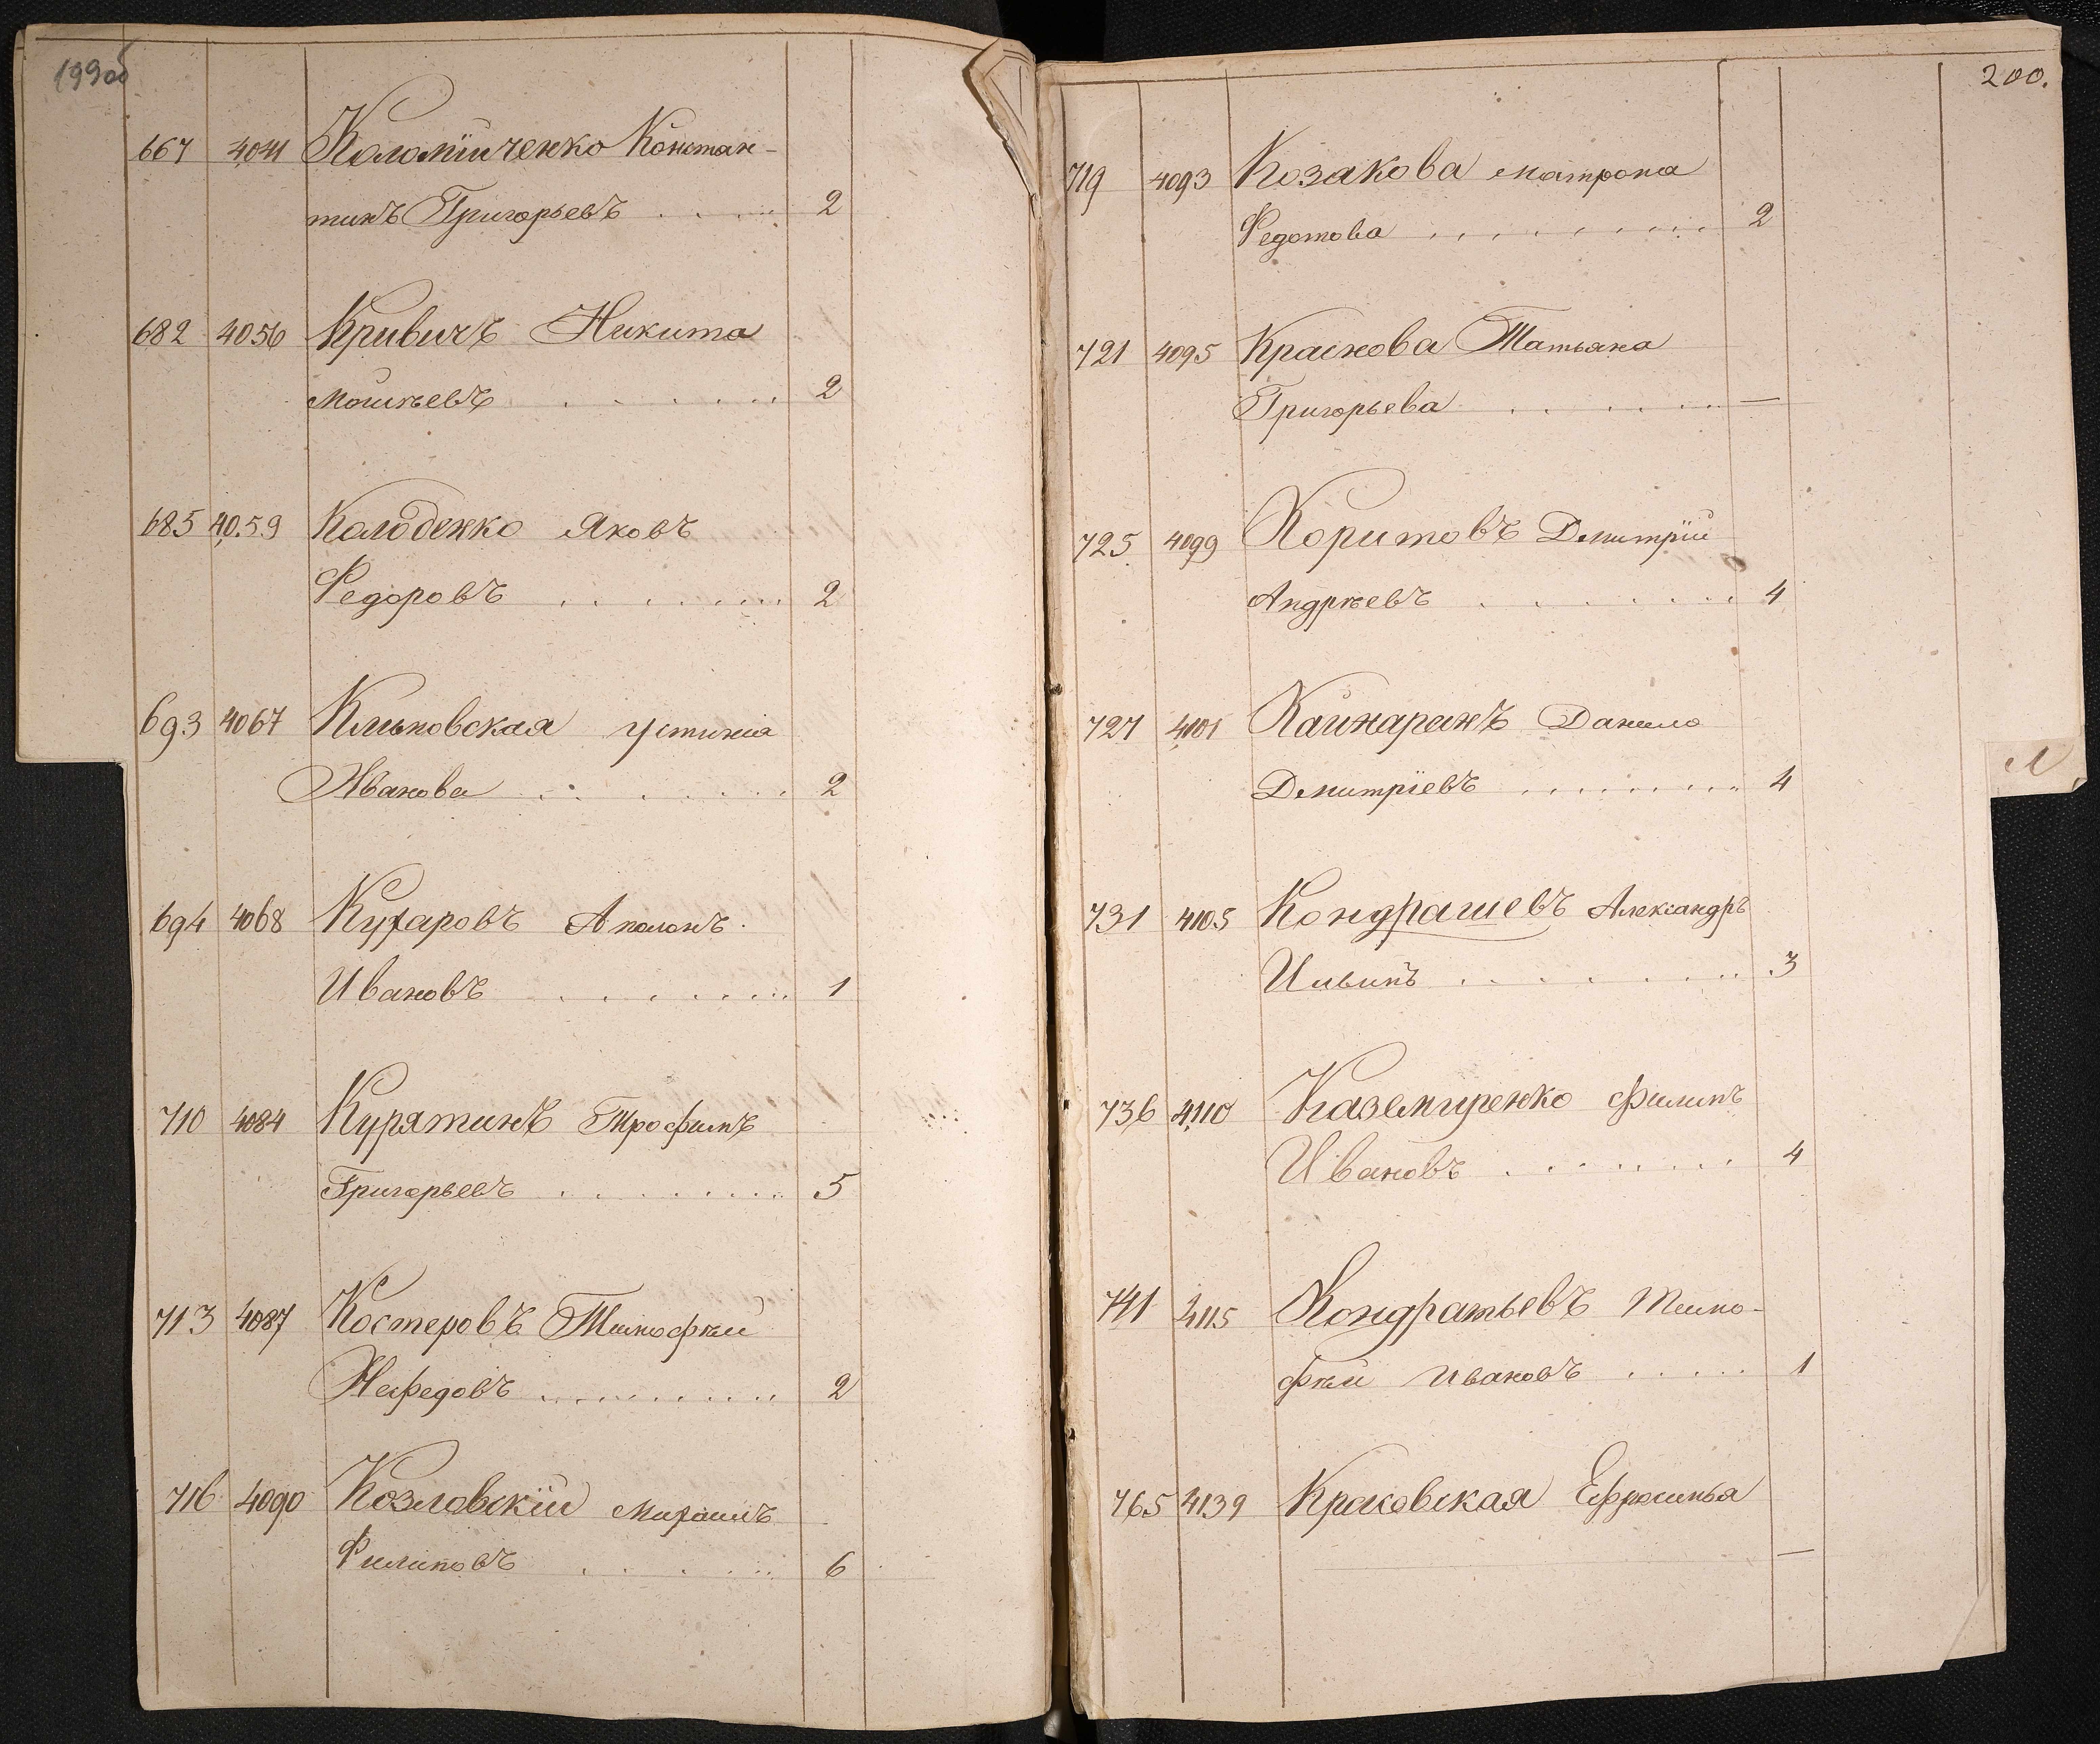 199об
667 4041 Коломійченко Констан-
тинъ Григорьевъ . . . . . 2
682 4056 Кривичъ Никита
Моисѣевъ . . . . . . 2
685 4059 Колоденко Яковъ
Федоровъ . . . . . . . 2
693 4067 Устинія
Иванова . . . . . . . 2
694 4068 Кухаровъ Аполонъ
Ивановъ . . . . . . . 1
710 4084 Курятинъ Трофимъ
Григорьевъ . . . . . . . . 5
713 4087 Костеровъ Тимофѣй
Нефедовъ . . . . . . . . . 2
716 4090 Козловскій Михаилъ
Филиповъ . . . . . . 6
200.
719 4093 Козакова Матрона
Федотова . . . . . . . . . . 2
721 4095 Краснова Татьяна
Григорьева . . . . . . . —
725 4099 Коритовъ Дмитрій
Андрѣевъ . . . . . . . 4
727 4101 Кайнаранъ Данило
Дмитріевъ . . . . . . . . . 4
Л
731 4105 Кондрашевъ Александръ
Ильинъ . . . . . . . . 3
736 4110 Каземиренко Филипъ
Ивановъ . . . . . . . . 4
741 4115 Кондратьевъ Тимо-
фѣй Ивановъ . . . . . 1
765 4139 Краковская Ефросинья
—